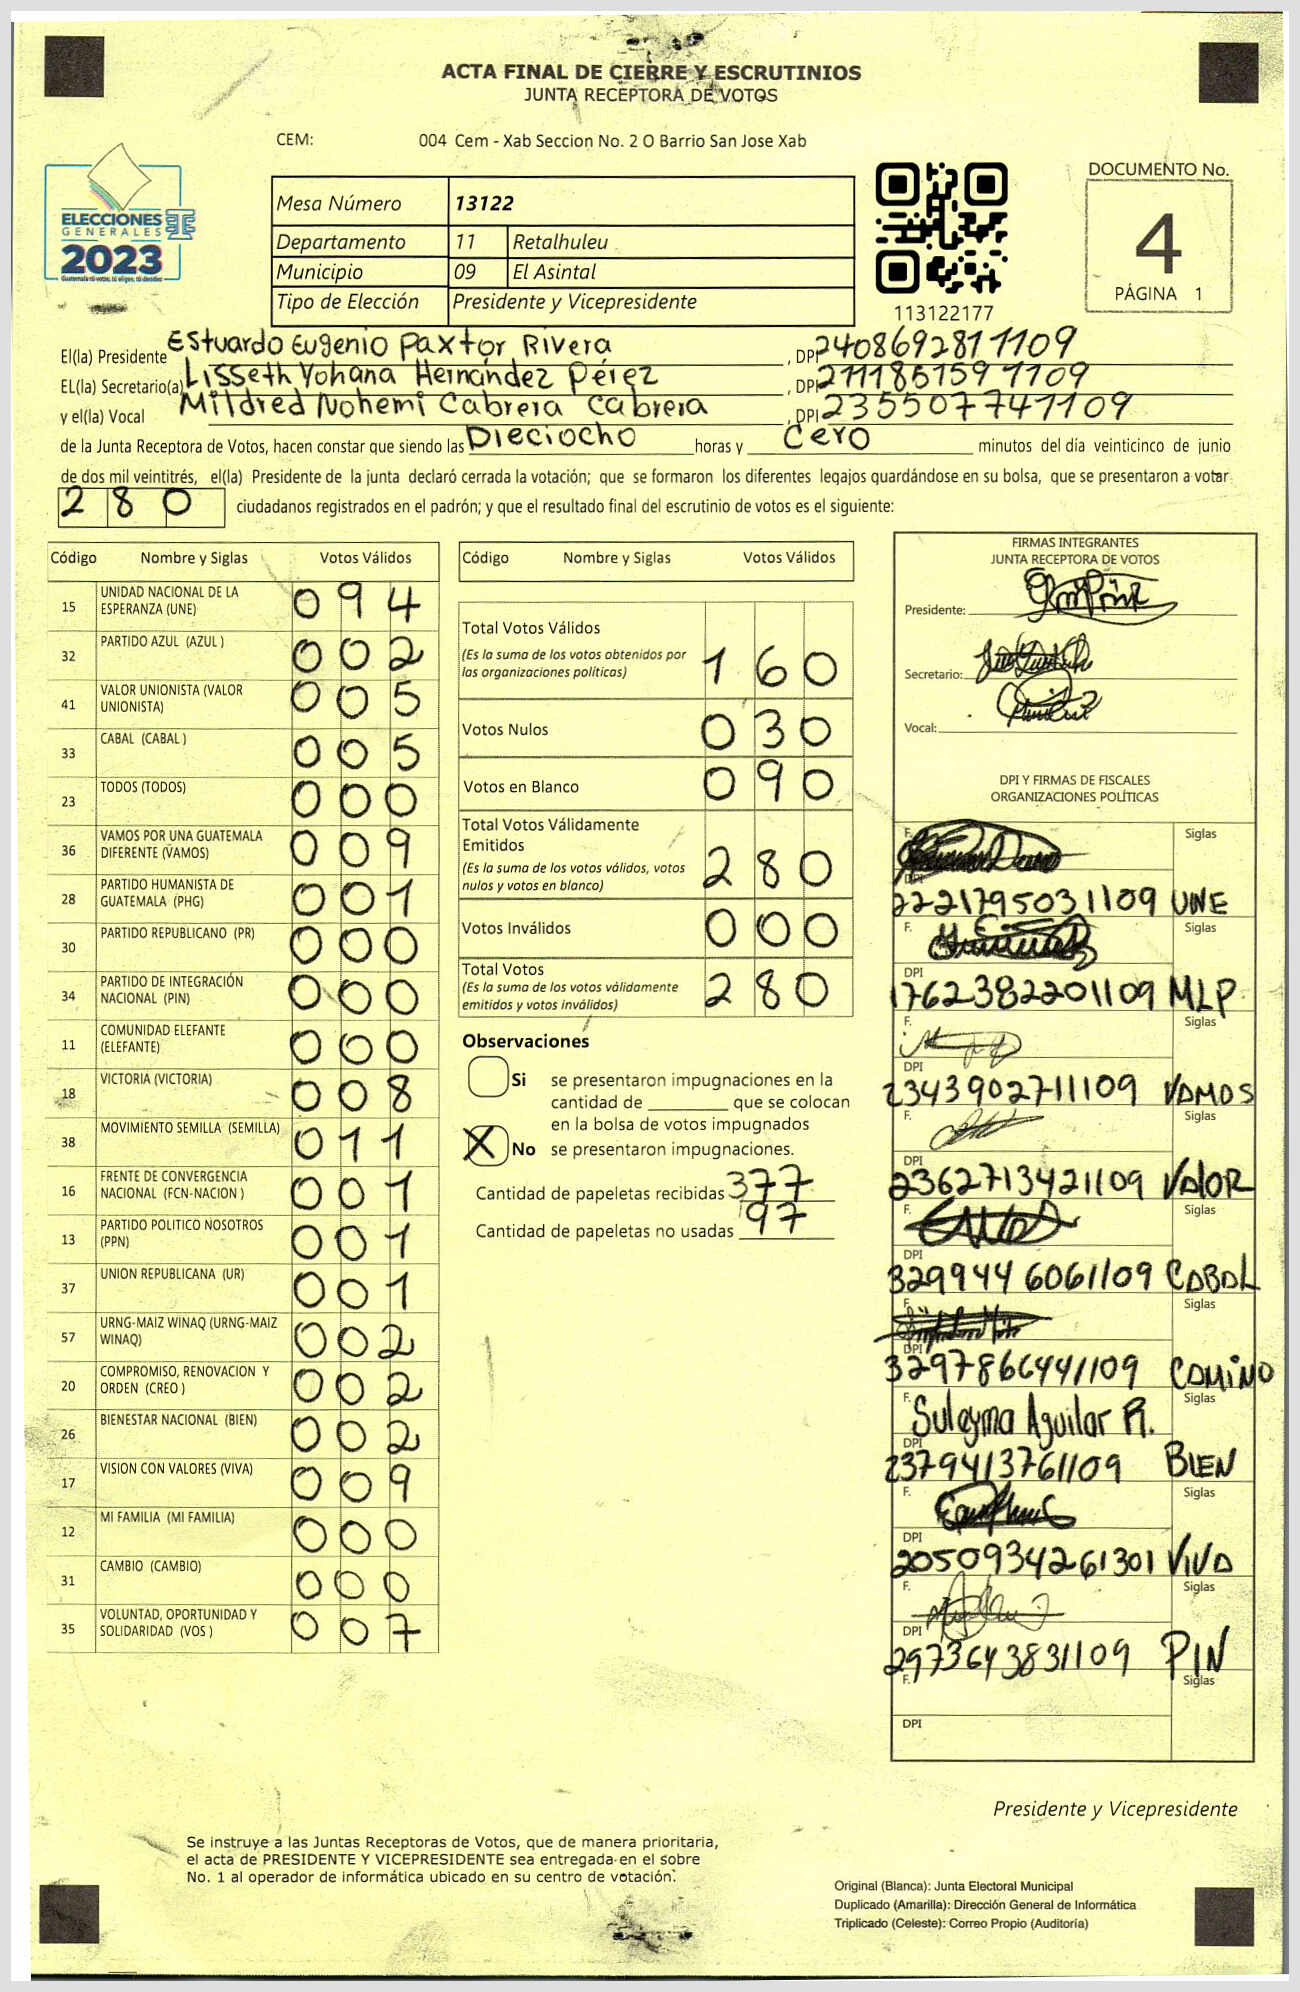 ACTA FINAL DE CIERRE Y ESCRUTINIOS
JUNTA RECEPTORA DE VOTOS
CEM: 004 Cem - Xab Seccion No. 2 O Barrio San Jose Xab
ELECCIONES
GENERALES
2023
Guatemala tú votas, tú eliges, tú decides
Mesa Número 13122
Departamento 11 Retalhuleu
Municipio 09 El Asintal
Tipo de Elección Presidente y Vicepresidente
113122177
DOCUMENTO No.
4
PÁGINA 1
El(la) Presidente Estuardo Eugenio Paxtor Rivera , DPI 2408692811109
EL(la) Secretario(a) Lisseth Yohana Hernández Pérez , DPI 2111851591109
y el(la) Vocal Mildred Nohemi Cabrera Cabrera , DPI 2355077471109
de la Junta Receptora de Votos, hacen constar que siendo las Dieciocho horas y Cero minutos del día veinticinco de junio
de dos mil veintitrés, el(la) Presidente de la junta declaró cerrada la votación; que se formaron los diferentes legajos guardándose en su bolsa, que se presentaron a votar
280 ciudadanos registrados en el padrón; y que el resultado final del escrutinio de votos es el siguiente:
Código Nombre y Siglas Votos Válidos
15 UNIDAD NACIONAL DE LA ESPERANZA (UNE) 094
32 PARTIDO AZUL (AZUL ) 002
41 VALOR UNIONISTA (VALOR UNIONISTA) 005
33 CABAL (CABAL ) 005
23 TODOS (TODOS) 000
36 VAMOS POR UNA GUATEMALA DIFERENTE (VAMOS) 009
28 PARTIDO HUMANISTA DE GUATEMALA (PHG) 001
30 PARTIDO REPUBLICANO (PR) 000
34 PARTIDO DE INTEGRACIÓN NACIONAL (PIN) 000
11 COMUNIDAD ELEFANTE (ELEFANTE) 000
18 VICTORIA (VICTORIA) 008
38 MOVIMIENTO SEMILLA (SEMILLA) 011
16 FRENTE DE CONVERGENCIA NACIONAL (FCN-NACION ) 001
13 PARTIDO POLITICO NOSOTROS (PPN) 001
37 UNION REPUBLICANA (UR) 001
57 URNG-MAIZ WINAQ (URNG-MAIZ WINAQ) 002
20 COMPROMISO, RENOVACION Y ORDEN (CREO ) 002
26 BIENESTAR NACIONAL (BIEN) 002
17 VISION CON VALORES (VIVA) 009
12 MI FAMILIA (MI FAMILIA) 000
31 CAMBIO (CAMBIO) 000
35 VOLUNTAD, OPORTUNIDAD Y SOLIDARIDAD (VOS ) 007
Código Nombre y Siglas Votos Válidos
Total Votos Válidos
(Es la suma de los votos obtenidos por las organizaciones políticas) 160
Votos Nulos 030
Votos en Blanco 090
Total Votos Válidamente Emitidos
(Es la suma de los votos válidos, votos nulos y votos en blanco) 280
Votos Inválidos 000
Total Votos
(Es la suma de los votos válidamente emitidos y votos inválidos) 280
Observaciones
Si se presentaron impugnaciones en la
cantidad de ________ que se colocan
en la bolsa de votos impugnados
X No se presentaron impugnaciones.
Cantidad de papeletas recibidas 377
Cantidad de papeletas no usadas 97
FIRMAS INTEGRANTES
JUNTA RECEPTORA DE VOTOS
Presidente:
Secretario:
Vocal:
DPI Y FIRMAS DE FISCALES
ORGANIZACIONES POLÍTICAS
F. Siglas
DPI 2221795031109 UNE
F. Siglas
DPI 1762382201109 MLP
F. Siglas
DPI 2343902711109 VAMOS
F. Siglas
DPI 2362713421109 VALOR
F. Siglas
DPI 3299446061109 CABAL
F. Siglas
DPI 3297866441109 CAMINO
F. Suleyma Aguilar R. Siglas
DPI 2379413761109 BIEN
F. Siglas
DPI 2050934261301 VIVA
F. Siglas
DPI 2973643831109 PIN
F. Siglas
DPI
Presidente y Vicepresidente
Se instruye a las Juntas Receptoras de Votos, que de manera prioritaria,
el acta de PRESIDENTE Y VICEPRESIDENTE sea entregada en el sobre
No. 1 al operador de informática ubicado en su centro de votación.
Original (Blanca): Junta Electoral Municipal
Duplicado (Amarilla): Dirección General de Informática
Triplicado (Celeste): Correo Propio (Auditoría)